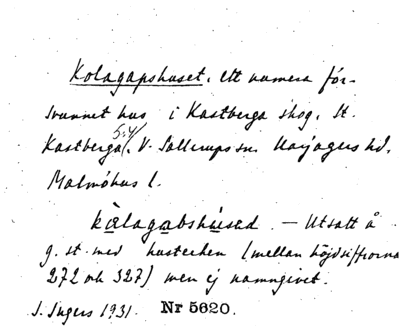 Kolagapshuset, ett numera för-
svunnet hus i Kastberga skog, St.
Kastberga 5:4/, V. Sallerups sn. Harjagers hd.
Malmöhus l.
kǎlagabshúsəd. — Utsatt å
g. st. med hustecken (mellan höjdsiffrorna
272 och 327) men ej namngivet.
J. Ingers 1931. Nr 5620.